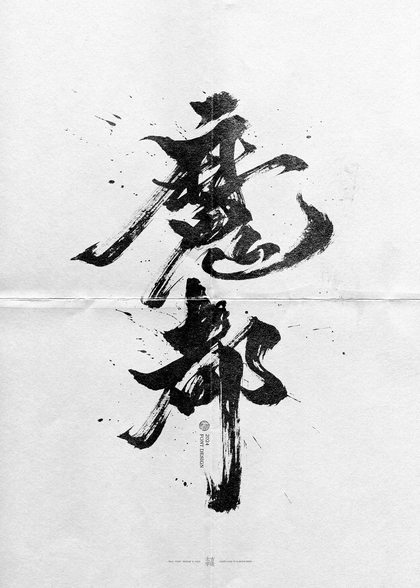 魔都
2024
FONT DESIGN